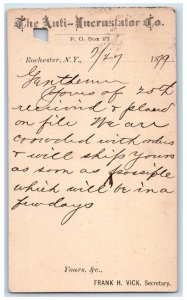 The Anti-Incrustator Co.
P. O. Box 27.
Rochester, N.Y., 9/27 1879
Gentlemen
Yours of 25th
received & placed
on file We are
crowded with orders
& will ship yours
as soon as possible
which will be in a
few days
Yours, &c.,
FRANK H. VICK, Secretary.